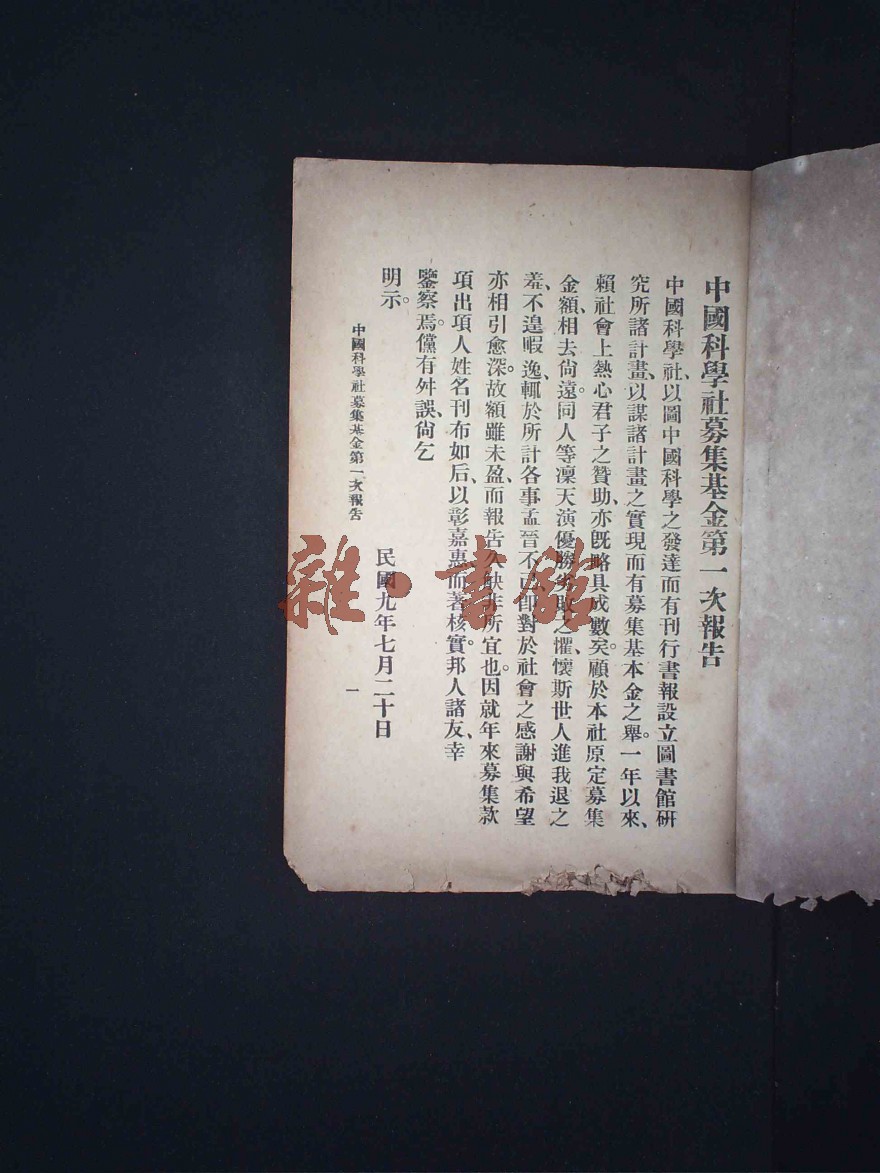 中國科學社募集基金第一次報告
中國科學社、以圖中國科學之發達而有刊行書報設立圖書館研
究所諸計畫、以謀諸計畫之實現而有募集基本金之舉。一年以來、
賴社會上熱心君子之贊助、亦旣略具成數矣。顧於本社原定募集
金額、相去尙遠。同人等凜天演優勝劣敗之懼、懷斯世人進我退之
羞、不遑暇逸、輒於所計各事孟晉不已、卽對於社會之感謝與希望
亦相引愈深。故額雖未盈、而報告久缺非所宜也。因就年來募集款
項出項人姓名刊布如后、以彰嘉惠而著核實。邦人諸友、幸
鑒察焉。儻有舛誤、尙乞
明示。
民國九年七月二十日
中國科學社募集基金第一次報告
一
雜·書館